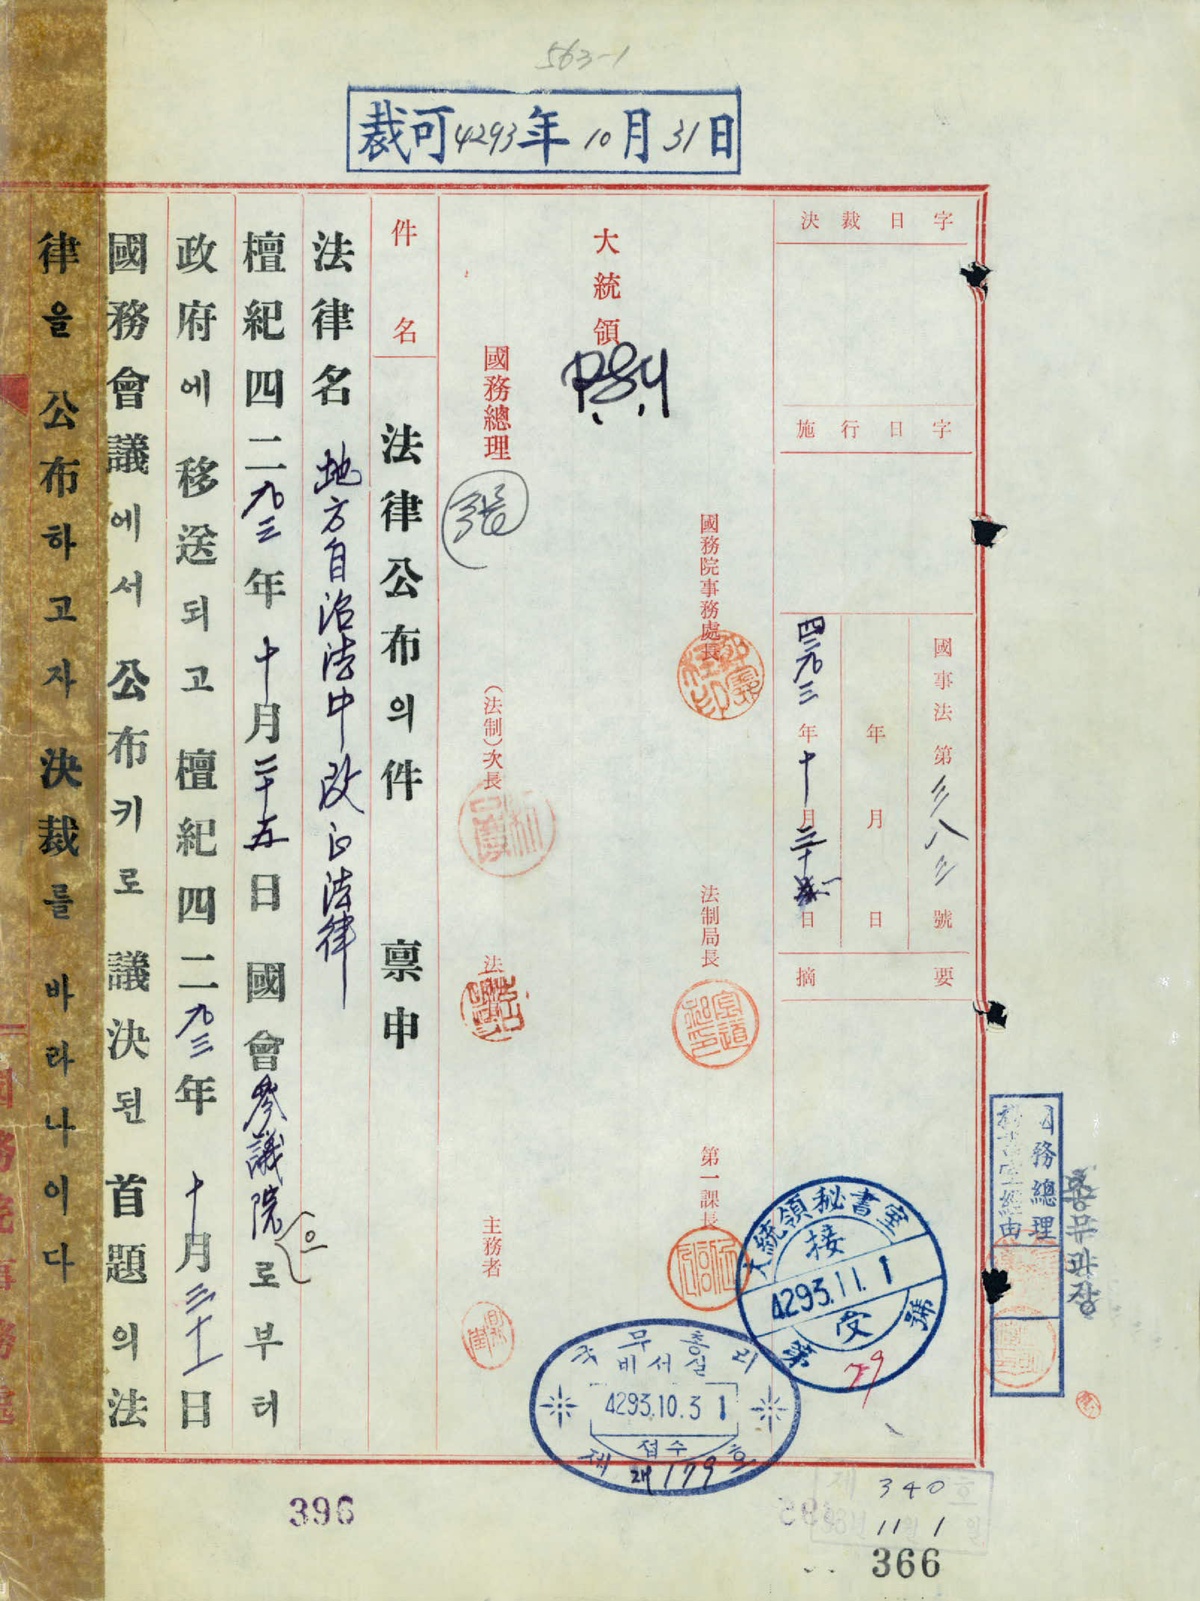 563-1
裁可 4293年 10月 31日
決裁日字
施行日字
國事法第 三八三 號
年 月 日
四二九三年 十月 三十 日
摘要
大統領
P.S.Y
國務院事務處長
法制局長
第一課長
國務總理
張
(法制)次長
法
主務者
件名 法律公布의件 稟申
法律名 地方自治法中改正法律
檀紀四二九三年 十月二十五日 國會參議院으로부터
政府에 移送되고 檀紀四二九三年 十月三十一日
國務會議에서 公布키로 議決된 首題의 法
律을 公布하고자 決裁를 바라나이다
國務院事務處
大統領秘書室
接
4293.11.1
受
第 79 號
국무총리
비서실
4293.10.31
접수
제 대179 호
國務總理
秘書室經由
총무과장
제 340 호
11월 1일
396
366